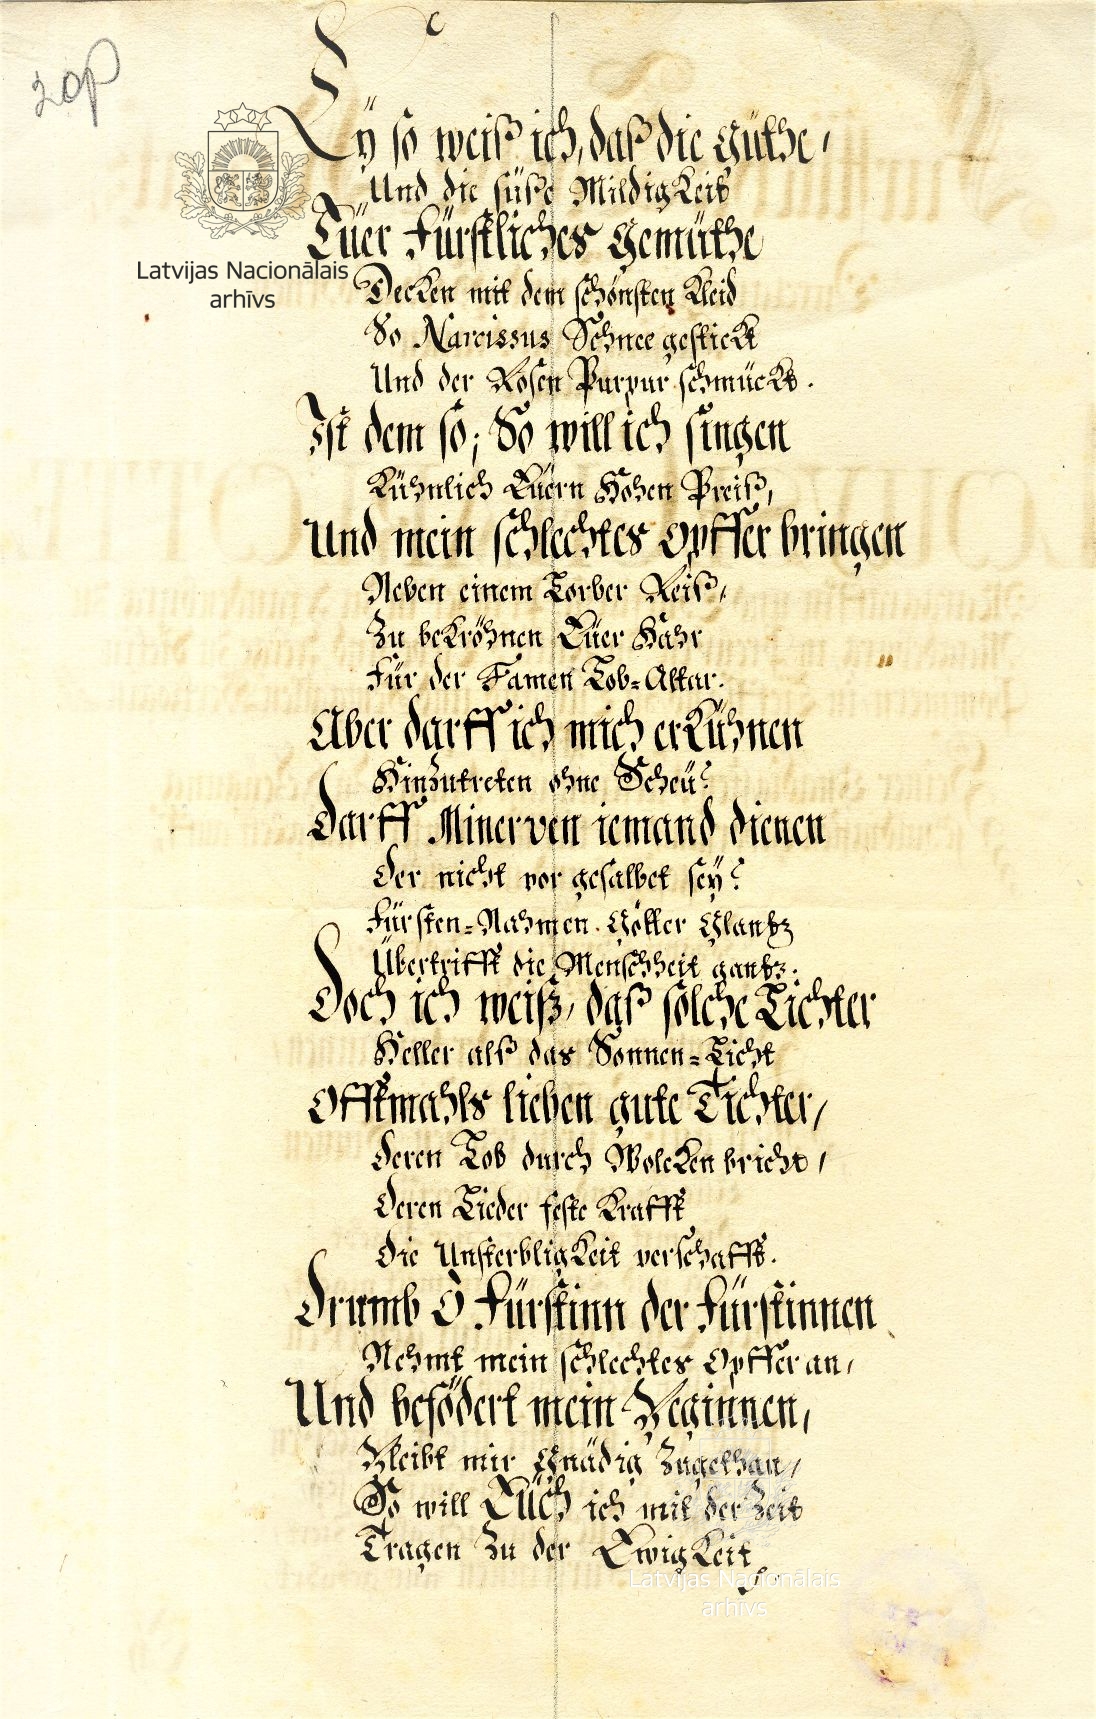 20p
Eÿ so weiß ich, daß die Güthe,
Und die süße Mildigkeit
Eüer Fürstliches Gemüthe
Decken mit dem schönsten Kleid
So Narcissus Schnee gestickt
Und der Rosen Purpur schmückt.
Ist dem so; So will ich singen
Kühnlich Eüern Hohen Preiß,
Und mein schlechtes Opffer bringen
Neben einem Lorber Reiß,
Zu bekröhnen Eüer Hahr
Für der Famen Lob=Altar.
Aber darff ich mich erkühnen
Hinzutreten ohne Scheü?
Darff Minerven iemand dienen
Der nicht vor gesalbet seÿ?
Fürsten=Nahmen. Götter Glantz
Übertrifft die Menschheit gantz.
Doch ich weiß, daß solche Lichter
Heller alß das Sonnen=Licht
Offtmahls lieben gute Tichter,
Deren Lob durch Wolcken bricht,
Deren Lieder feste Krafft
Die Unsterbligkeit verschafft.
Drumb O Fürstinn der Fürstinnen
Nehmt mein schlechtes Opffer an,
Und befödert mein Beginnen,
Bleibt mir Gnädig Zugethan,
So will Eüch ich mit der Zeit
Tragen Zu der Ewigkeit
Latvijas Nacionālais
arhīvs
Latvijas Nacionālais
arhīvs